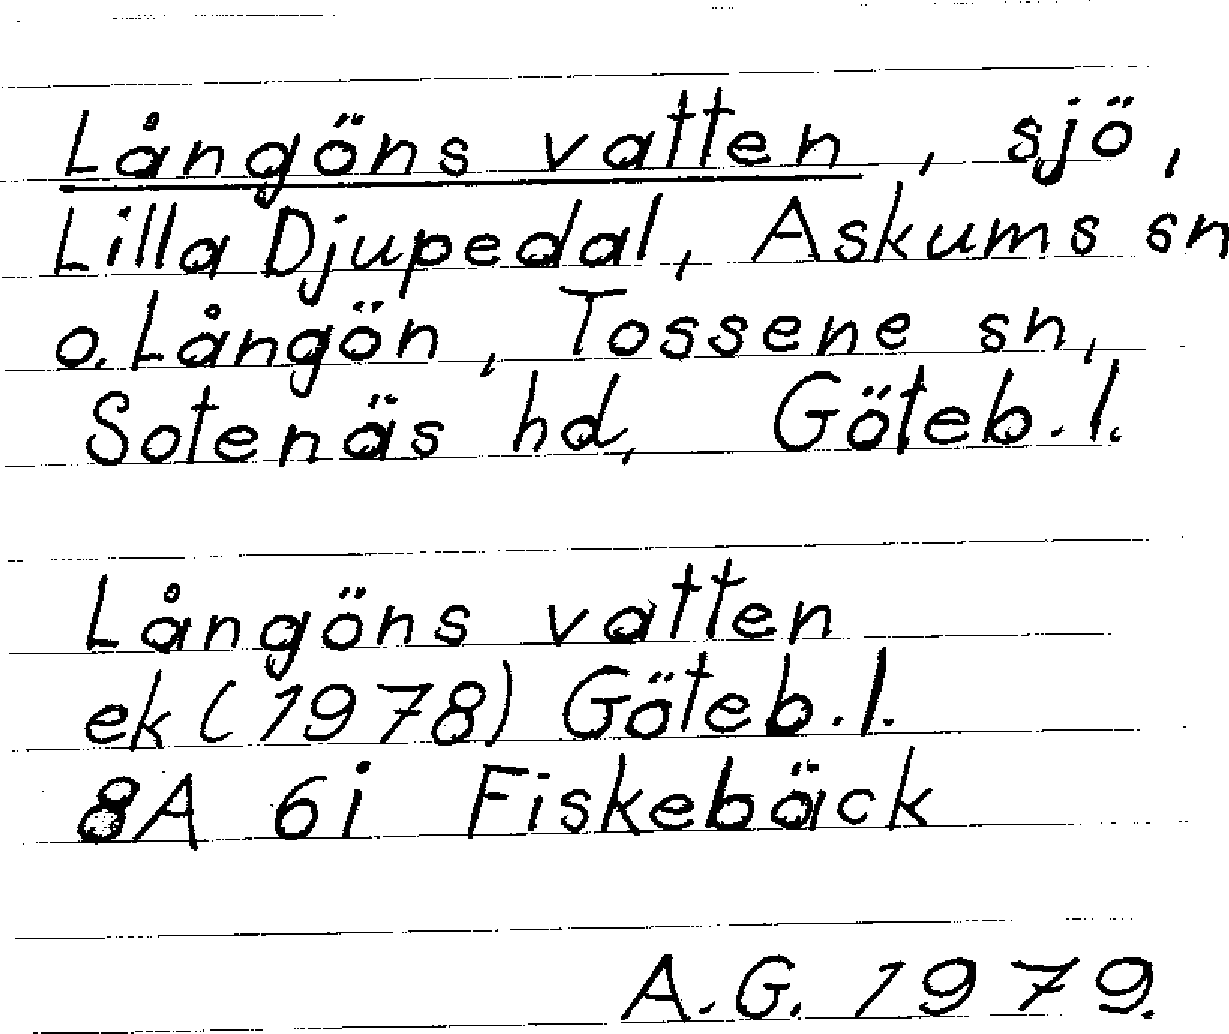 Långöns vatten, sjö,
Lilla Djupedal, Askums sn
o. Långön, Tossene sn,
Sotenäs hd, Göteb. l.
Långöns vatten
ek (1978) Göteb. l.
8A 6i Fiskebäck
A. G. 1979.